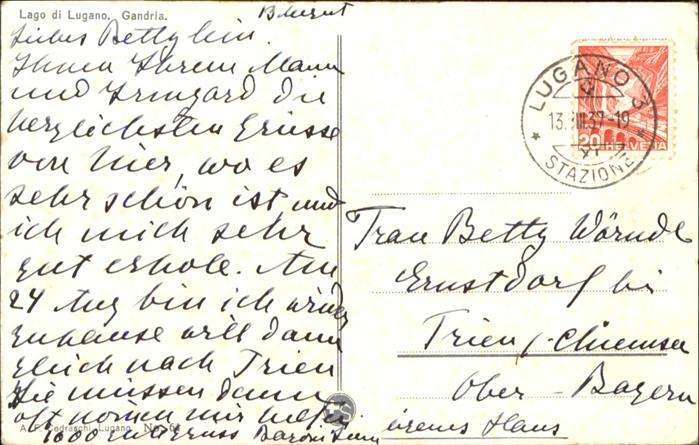 Lago di Lugano. Gandria.
Liebes Bettylein.
Ihnen Ihrem Mann
und Irmgard die
herzlichsten Grüsse
von hier, wo es
sehr schön ist und
ich mich sehr
gut erhole. Am
24 Aug bin ich wieder
zuhause will dann
gleich nach Prien
Sie müssen dann
oft
1000 Baronin
LUGANO 3
13. VIII. 37-19
STAZIONE
20 HELVETIA
Frau Betty Wörndl
Ernstdorf bei
Prien / Chiemsee
Ober-Bayern
Haus
A. F. Pedraschi, Lugano No. 61